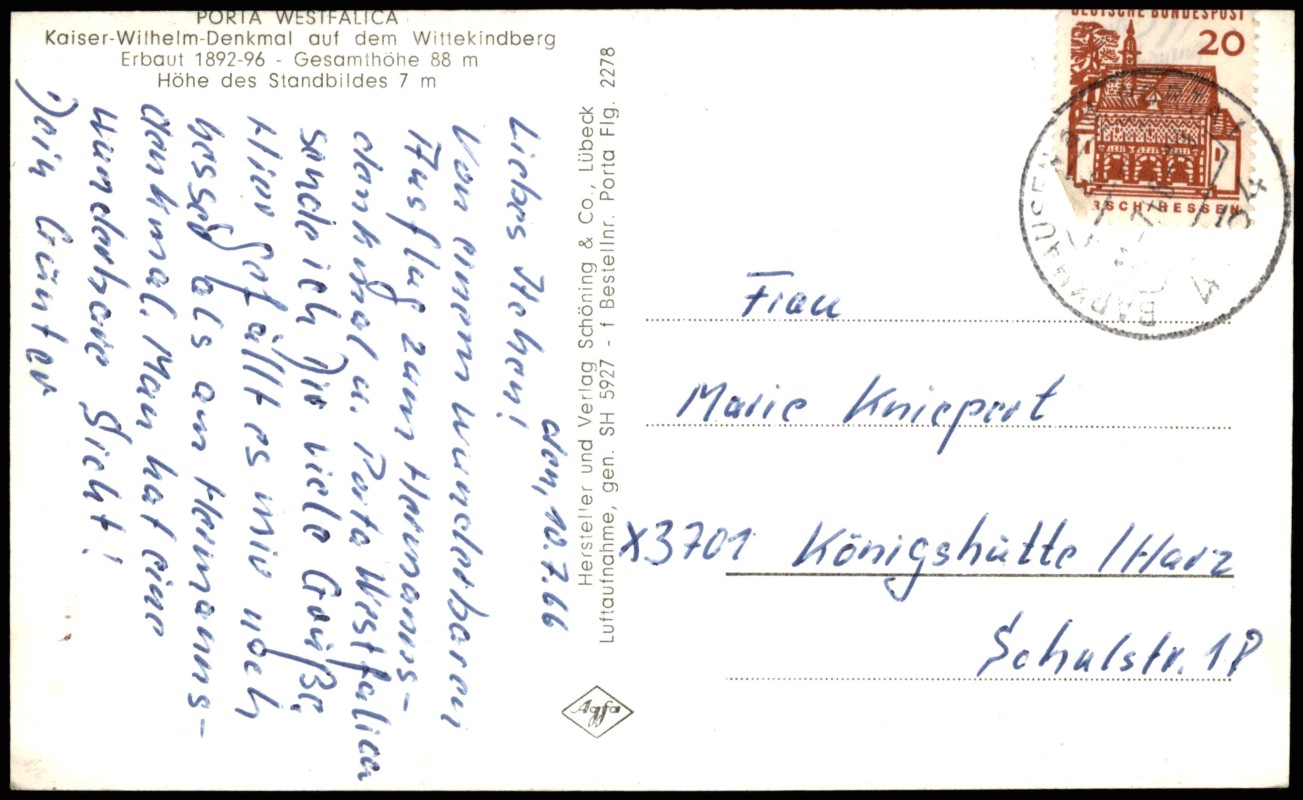 PORTA WESTFALICA
Kaiser-Wilhelm-Denkmal auf dem Wittekindberg
Erbaut 1892-96 - Gesamthöhe 88 m
Höhe des Standbildes 7 m
den, 10.7.66
Liebes
Von einem wunderbaren
Ausflug zum Hermanns-
denkmal u. Porta Westfalica
sende ich Dir viele Grüße.
Hier gefällt es mir noch
besser als am Hermanns-
denkmal. Man hat eine
wunderbare Sicht!
Dein Günter
Hersteller und Verlag Schöning & Co., Lübeck
Luftaufnahme, gen. SH 5927 - f Bestellnr. Porta Flg. 2278
Agfa
DEUTSCHE BUNDESPOST
20
RSCH/HESSEN
Frau
Marie Kniepert
X3701 Königshütte /Harz
Schulstr. 18